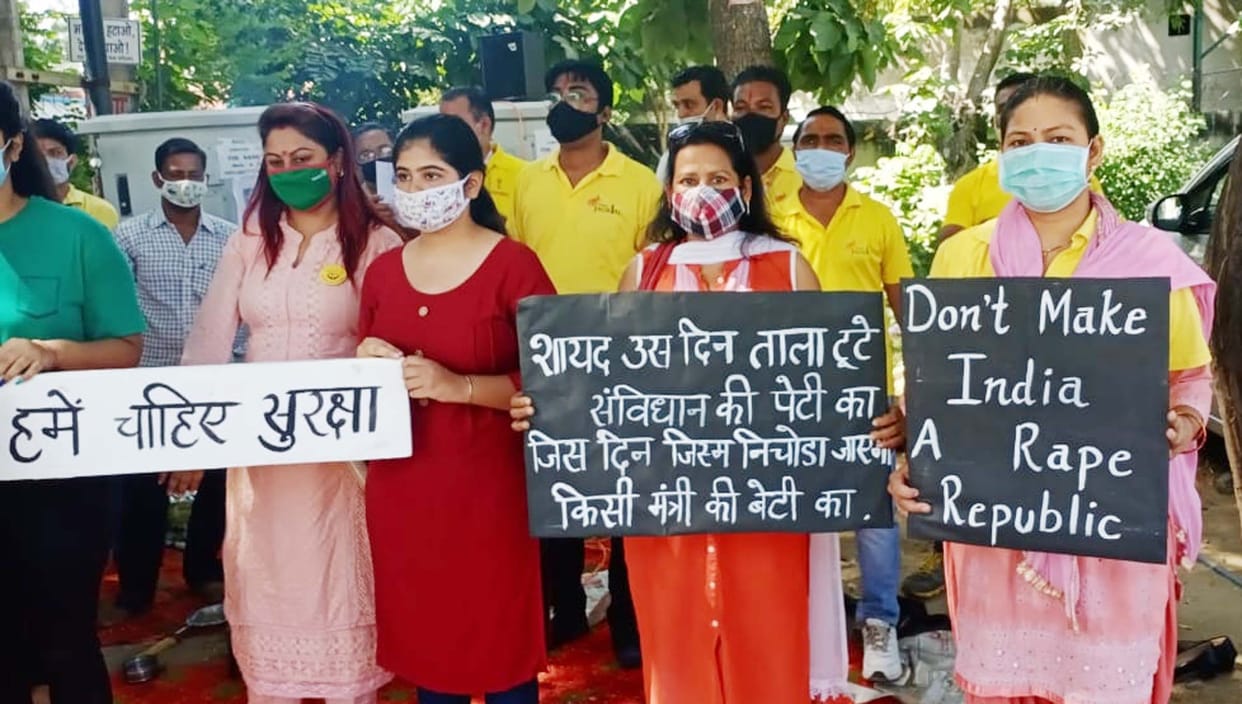 हटाओ,
हमें चाहिए सुरक्षा
शायद उस दिन ताला टूटे
संविधान की पेटी का
जिस दिन जिस्म निचोडा जाएगा
किसी मंत्री की बेटी का.
Don't Make
India
A Rape
Republic